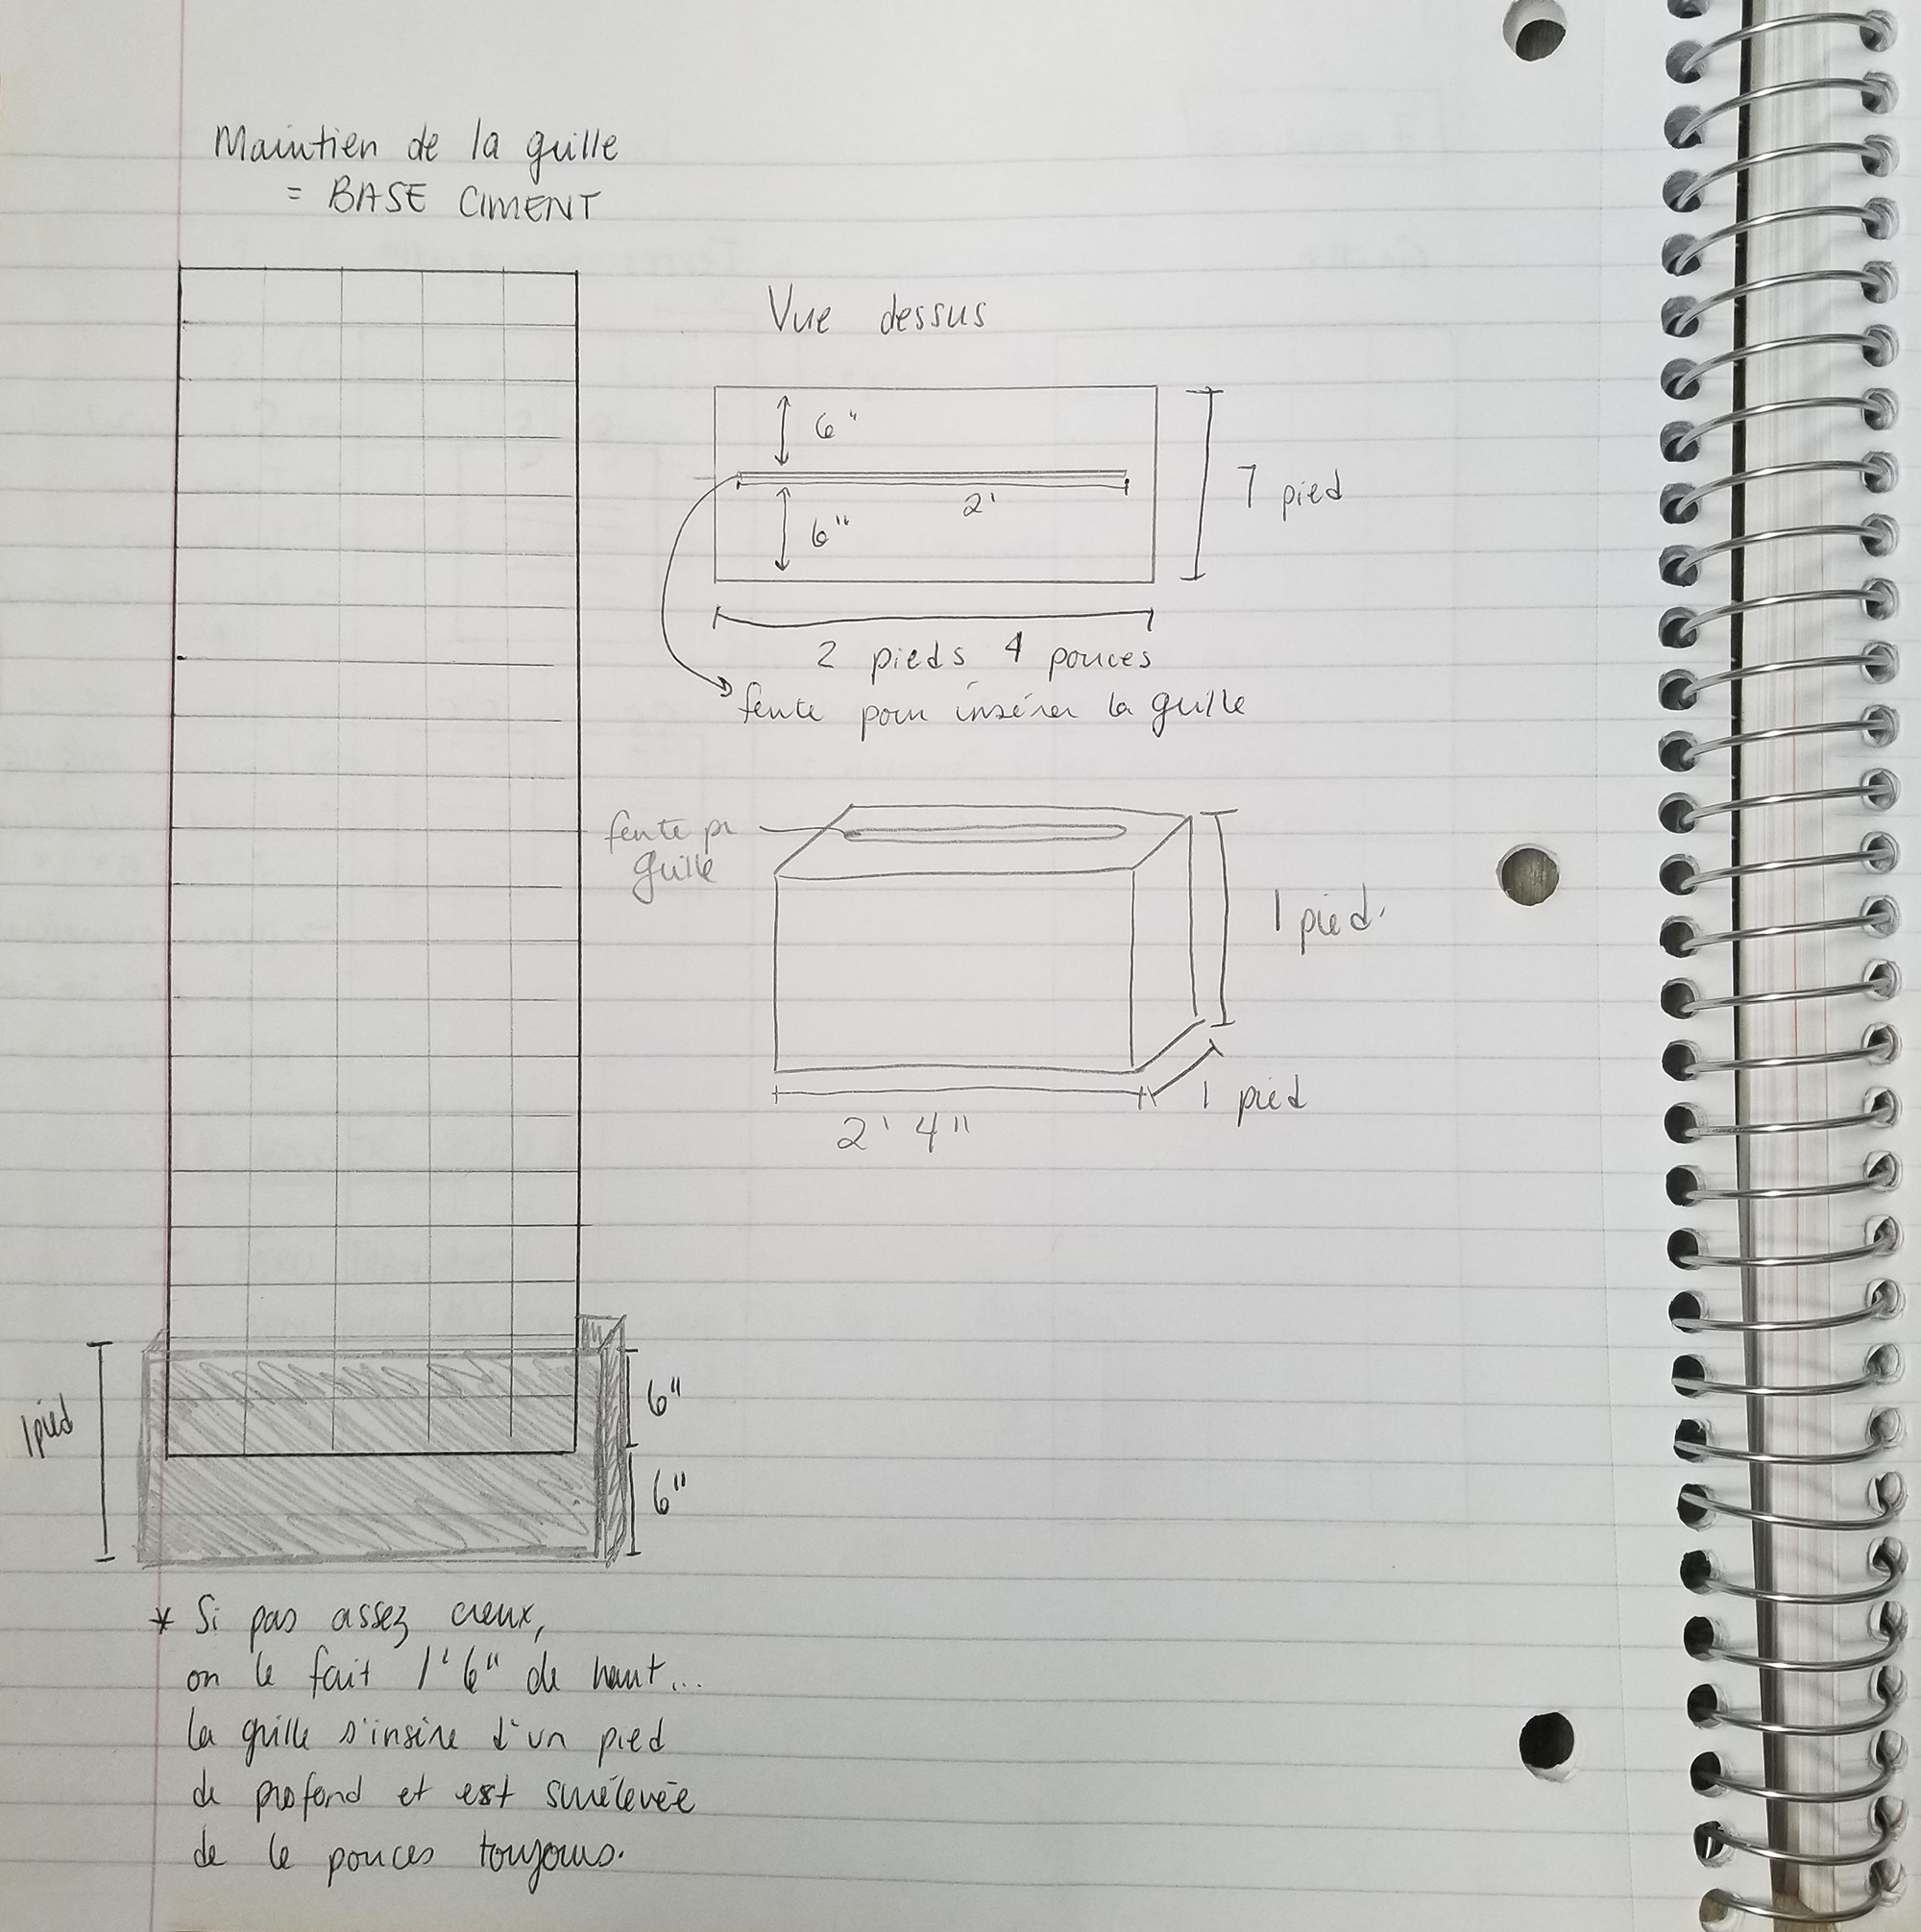 Maintien de la grille
= BASE CIMENT
Vue dessus
6"
2'
6"
7 pied
2 pieds 4 pouces
fente pour insérer la grille
fente pr
grille
1 pied.
1 pied
2' 4"
1 pied
6"
6"
* Si pas assez creux,
on le fait 1' 6" de haut...
la grille s'insère d'un pied
de profond et est surélevée
de 6 pouces toujours.